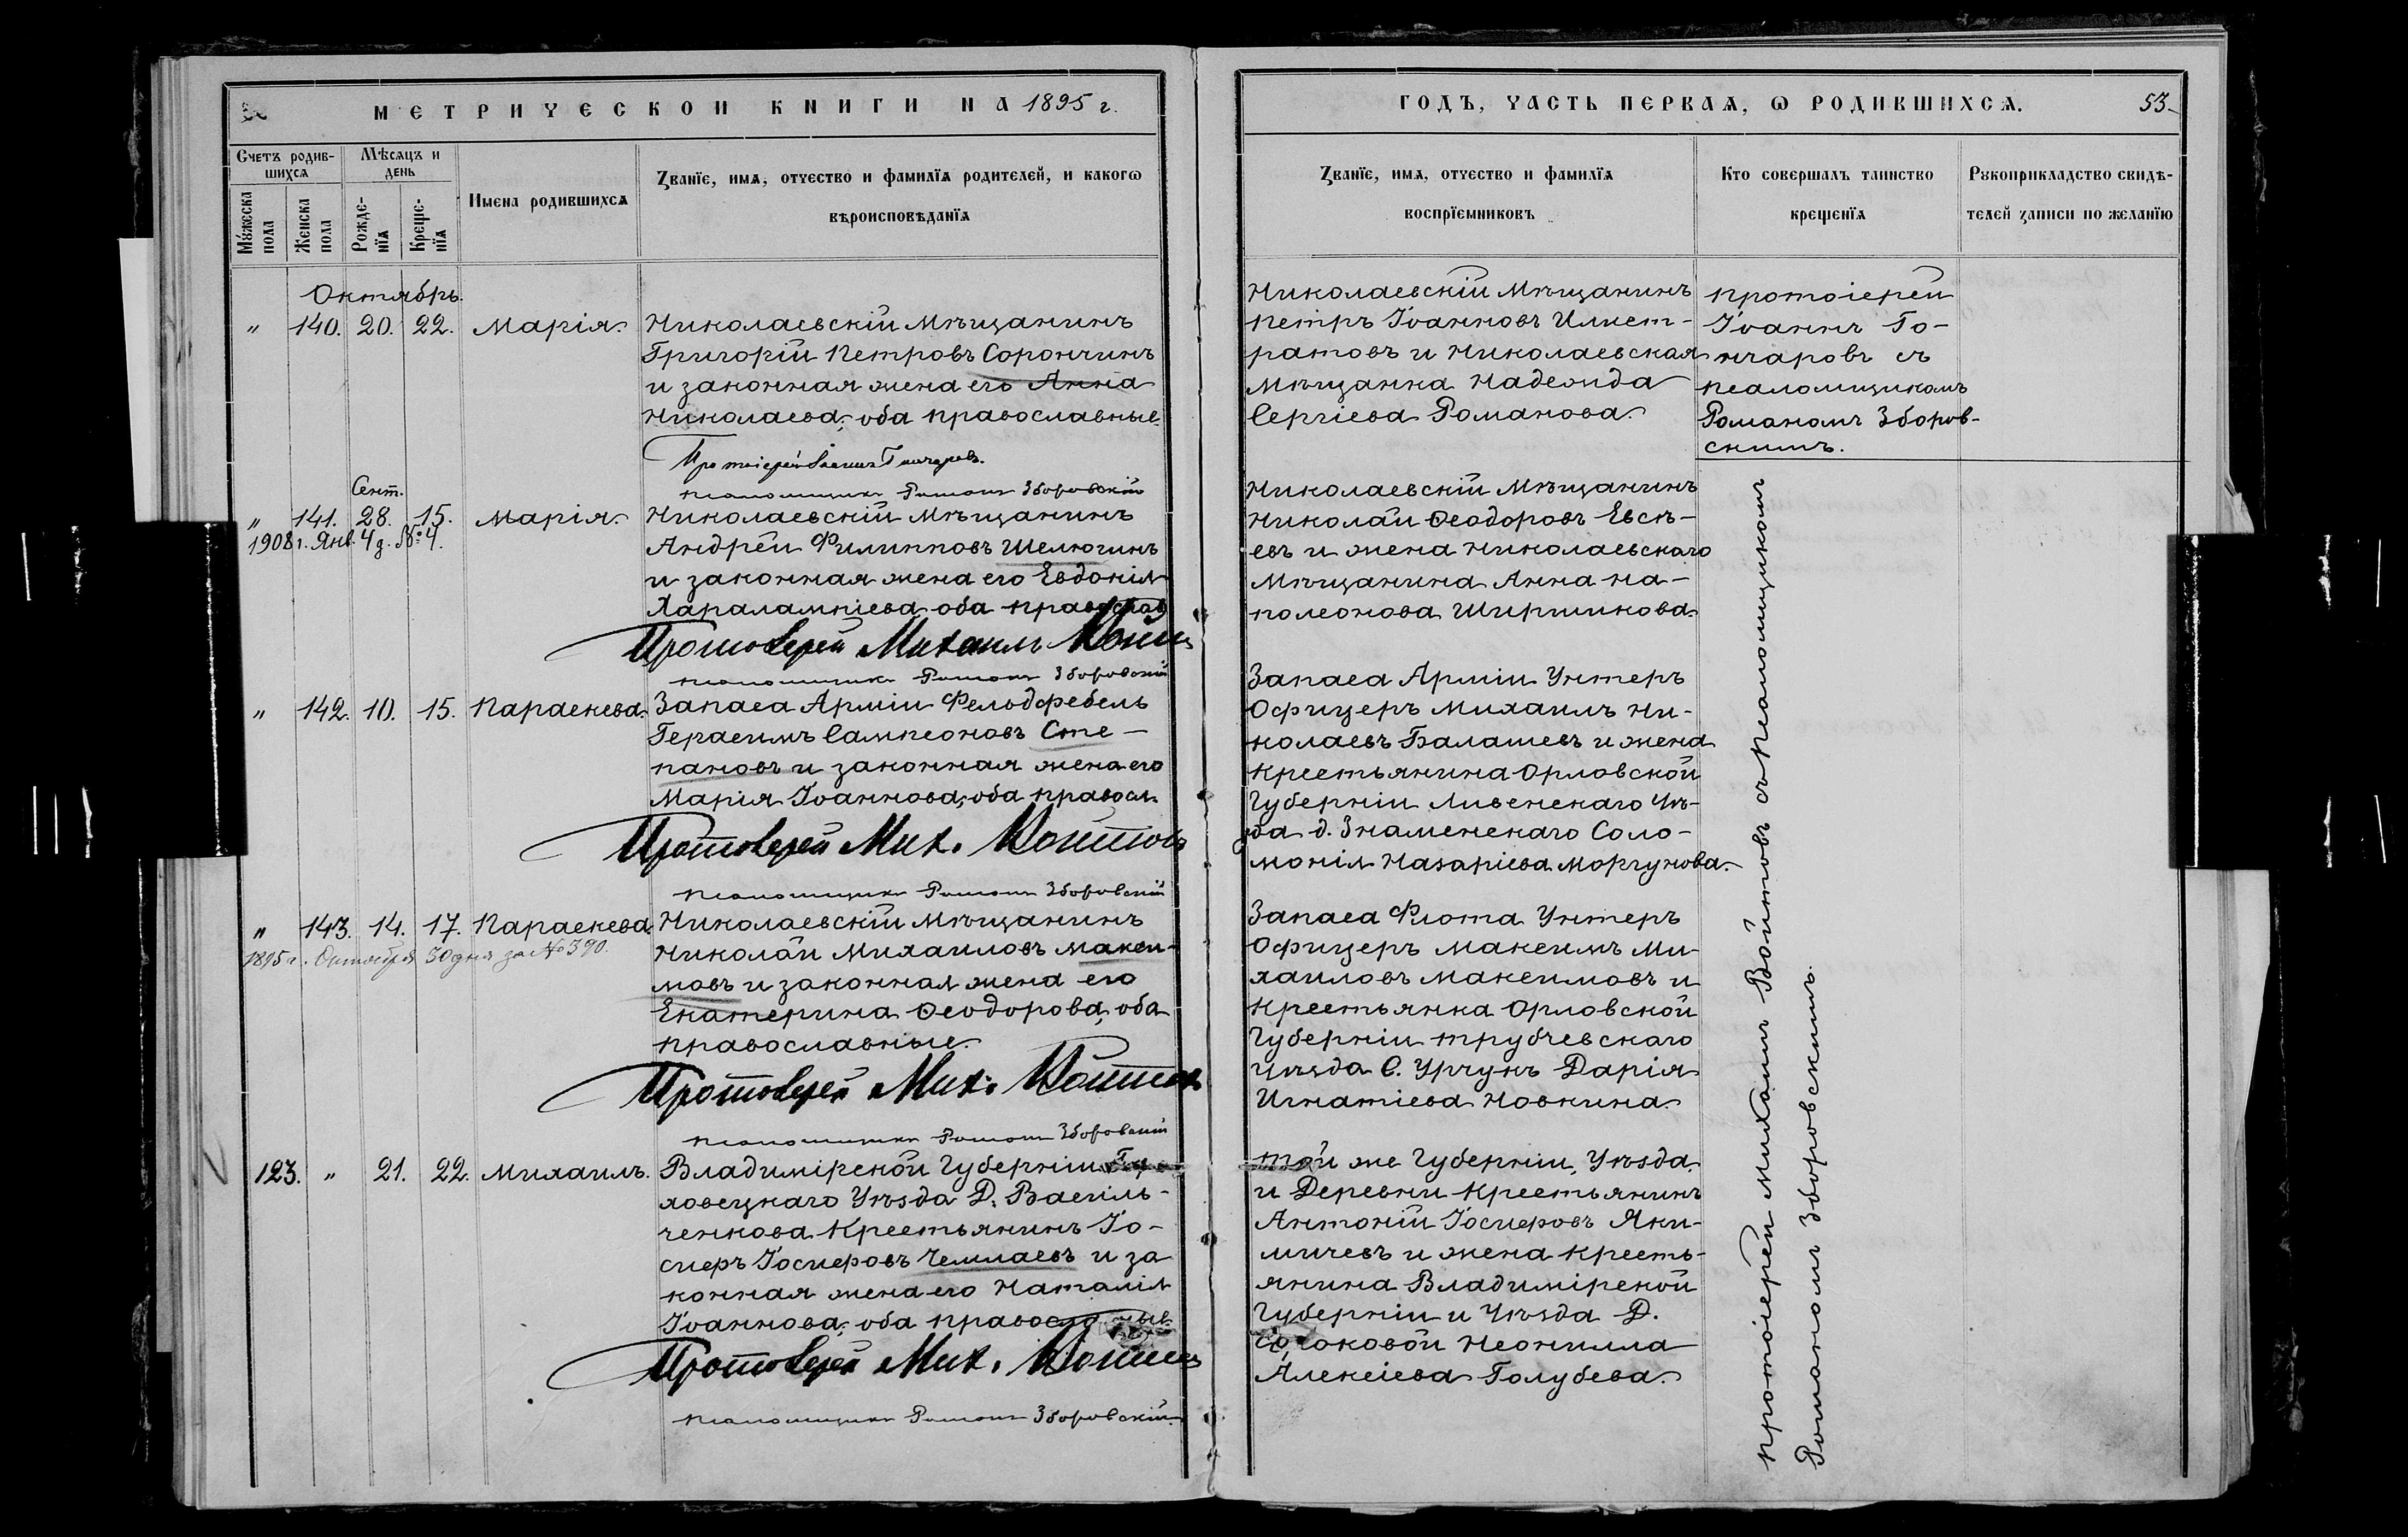 МЕТРИЧЕСКОЙ КНИГИ НА 1895 г.
Счетъ родив-
шихся
Мѣсяцъ и
день
Имена родившихся
Званїе, имя, отчество и фамилїя родителей, и какогѡ
вѣроисповѣданїя
Мꙋжеска
пола
Женска
пола
Рожде-
нїя
Креще-
нїя
Октябрь.
" 140. 20. 22. Марія.
Николаевскій Мѣщанинъ
Григорій Петровъ Сорончинъ
и законная жена его Анна
Николаева, оба православные.
Протоіерей Іоаннъ Гончаровъ.
псаломщикъ Романъ Зборовскій
Сент.
" 141. 28. 15. Марія.
1908 г. Янв. 4 д. № 4.
Николаевскій Мѣщанинъ
Андрей Филипповъ Шелюгинъ
и законная жена его Евдокія
Харалампіева оба православ
Протоіерей Михаилъ Войтов
псаломщикъ Романъ Зборовскій
" 142. 10. 15. Параскева.
Запаса Арміи Фельдфебель
Герасимъ Сампсоновъ Сте-
пановъ и законная жена его
Марія Іоаннова, оба правосл.
Протоіерей Мих. Войтовъ
псаломщикъ Романъ Зборовскій
" 143. 14. 17. Параскева.
1895 г. Октября 30 дня за № 390.
Николаевскій Мѣщанинъ
Николай Михаиловъ Макси-
мовъ и законная жена его
Екатерина Ѳеодорова, оба
православные.
Протоіерей Мих. Войтов
псаломщикъ Романъ Зборовскій
123. " 21. 22. Михаилъ.
Владимірской Губерніи Горо
ховецкаго Уѣзда Д. Василь-
ченкова Крестьянинъ Іо-
сифъ Іосифовъ Чемлаевъ и за
конная жена его Наталія
Іоаннова, оба православные.
Протоіерей Мих. Войтов
псаломщикъ Романъ Зборовскій.
ГОДЪ, ЧАСТЬ ПЕРВАЯ, Ѡ РОДИВШИХСЯ. 53
Званїе, имя, отчество и фамилїя
воспрїемниковъ
Кто совершалъ таинство
крещенїя
Рꙋкоприкладство свидѣ-
телей записи по желанїю
Николаевскій Мѣщанинъ
Петръ Іоанновъ Илист-
ратовъ и Николаевская
Мѣщанка Надежда
Сергіева Романова.
Протоіерей
Іоаннъ Го-
нчаровъ съ
псаломщикомъ
Романомъ Зборов-
скимъ.
Николаевскій Мѣщанинъ
Николай Ѳеодоровъ Евсѣ-
евъ и жена Николаевскаго
Мѣщанина Анна На-
полеонова Ширшикова.
Запаса Арміи Унтеръ
Офицеръ Михаилъ Ни-
колаевъ Балашевъ и жена
Крестьянина Орловской
Губерніи Ливенскаго Уѣ-
зда д. Знаменскаго Соло-
монія Назаріева Моргунова.
Запаса Флота Унтеръ
Офицеръ Максимъ Ми-
хаиловъ Максимовъ и
Крестьянка Орловской
Губерніи Трубчевскаго
Уѣзда С. Урчунъ Дарія
Игнатіева Новкина.
Той же Губерніи, Уѣзда
и Деревни Крестьянинъ
Антоній Іосифовъ Яки-
мичевъ и жена кресть-
янина Владимірской
Губерніи и Уѣзда Д.
Неонилла
Алексіева Голубева.
Протоіерей Михаилъ Войтовъ съ псаломщикомъ
Романомъ Зборовскимъ.